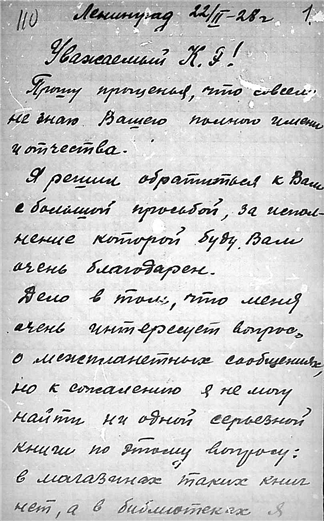 110 Ленинград 22/II-28г 1.
Уважаемый К. Г!
Прошу прощенья, что совсем
не знаю Вашего полного имени
и отчества.
Я решил обратиться к Вам
с большой просьбой, за испол-
нение которой буду Вам
очень благодарен.
Дело в том, что меня
очень интересует вопрос
о межпланетных сообщениях,
но к сожалению я не могу
найти ни одной серьезной
книги по этому вопросу:
в магазинах таких книг
нет, а в библиотеках я